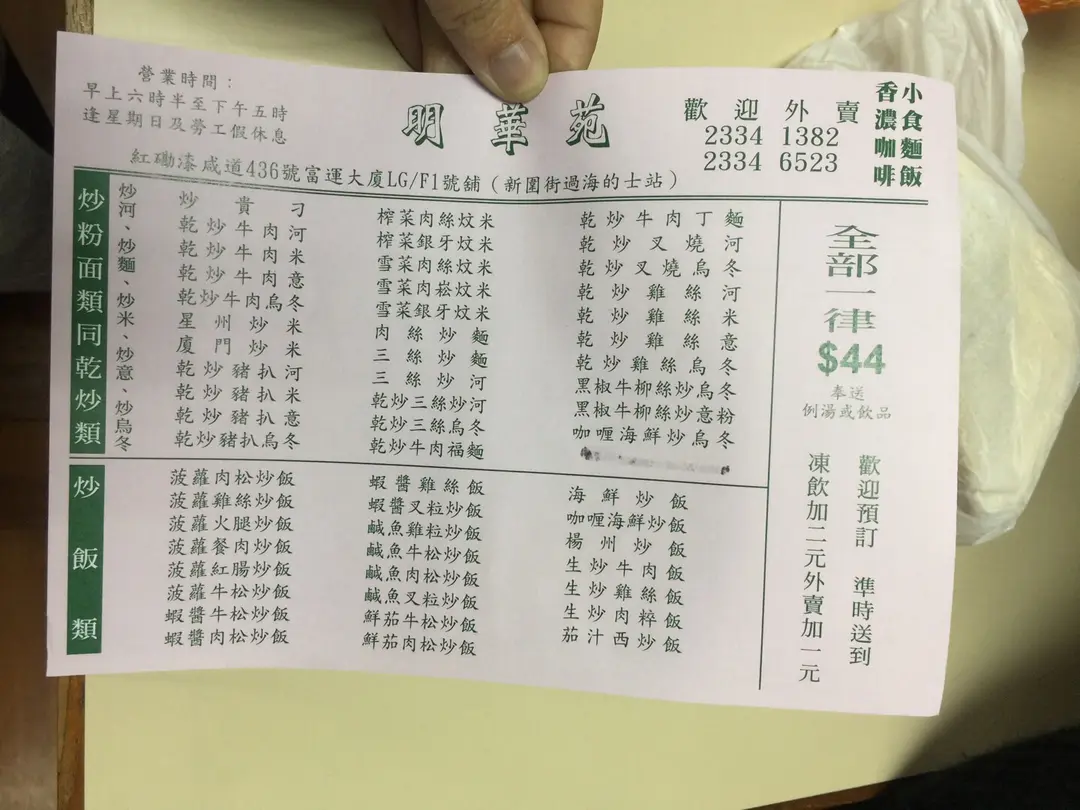 營業時間：
早上六時半至下午五時
逢星期日及勞工假休息
明華苑
歡迎外賣
2334 1382
2334 6523
小食麵飯
香濃咖啡
紅磡漆咸道436號富運大廈LG/F1號舖（新圍街過海的士站）
炒粉面類同乾炒類
炒河、炒麵、炒米、炒意、炒烏冬
炒貴刁
乾炒牛肉河
乾炒牛肉米
乾炒牛肉意
乾炒牛肉烏冬
星州炒米
廈門炒米
乾炒豬扒河
乾炒豬扒米
乾炒豬扒意
乾炒豬扒烏冬
榨菜肉絲炆米
榨菜銀牙炆米
雪菜肉絲炆米
雪菜肉崧炆米
雪菜銀牙炆米
肉絲炒麵
三絲炒麵
三絲炒河
乾炒三絲炒河
乾炒三絲烏冬
乾炒牛肉福麵
乾炒牛肉丁麵
乾炒叉燒河
乾炒叉燒烏冬
乾炒雞絲河
乾炒雞絲米
乾炒雞絲意
乾炒雞絲烏冬
黑椒牛柳絲炒烏冬
黑椒牛柳絲炒意粉
咖喱海鮮炒烏冬
炒飯類
菠蘿肉松炒飯
菠蘿雞絲炒飯
菠蘿火腿炒飯
菠蘿餐肉炒飯
菠蘿紅腸炒飯
菠蘿牛松炒飯
蝦醬牛松炒飯
蝦醬肉松炒飯
蝦醬雞絲飯
蝦醬叉粒炒飯
鹹魚雞粒炒飯
鹹魚牛松炒飯
鹹魚肉松炒飯
鹹魚叉粒炒飯
鮮茄牛松炒飯
鮮茄肉松炒飯
海鮮炒飯
咖喱海鮮炒飯
楊州炒飯
生炒牛肉飯
生炒雞絲飯
生炒肉粹飯
茄汁西炒飯
全部一律
$44
奉送
例湯或飲品
歡迎預訂 準時送到
凍飲加二元外賣加一元